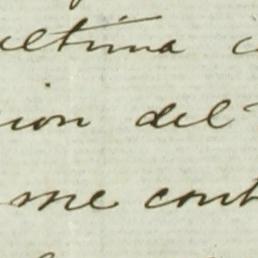 ultima
ion del
me cont